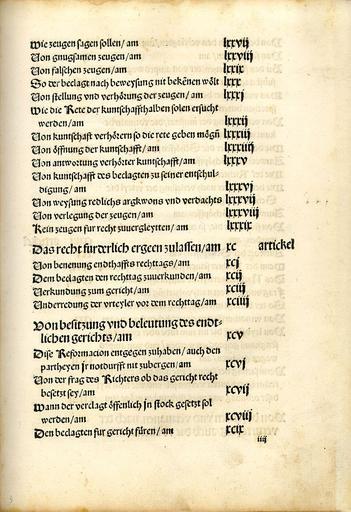 wie zeugen sagen sollen/ am lxxvij
Von gnugsamen zeugen/ am lxxviij
Von falschen zeugen/ am lxxix
So der beclagt nach beweysung nit bekennen wölt lxxx
Von stellung vnd verhörung der zeugen/ am lxxxj
wie die Rete der kuntschaffthalben solen ersucht
werden/am lxxxij
Von kuntschaft verhörern so die rete geben mögn lxxxiij
Von öffnung der kuntschafft/ am lxxxiiij
Von antwortung verhörter kuntschafft/am lxxxv
Von kuntschafft des beclagten zu seiner entschul-
digung/ am lxxxvj
Von weysung redlichs argkwons vnd verdachts lxxxvij
Von verlegung der zeugen/ am lxxxviij
Kein zeugen fur recht zuuergleytten/ am lxxxix
Das recht furderlich ergeen zulassen/am xc artickel
Von benenung endthaffts rechttags/am xcj
Dem beclagten den rechttag zuuerkunden/am xcij
Verkundung zum gericht/am xciij
Underredung der vrteyler vor dem rechttag/am xciiij
Von besitzung vnd beleutung des endt-
lichen gerichts/am xcv
Dise Reformacion entgegen zuhaben/ auch den
partheyen jr notdurfft nit zubergen/am xcvj
Von der frag des Richters ob das gericht recht
besetzt sey/am xcvij
wann der verclagt öffenlich jn stock gesetzt sol
werden/am xcviij
Den beclagten fur gericht füren/am xcix
iiij